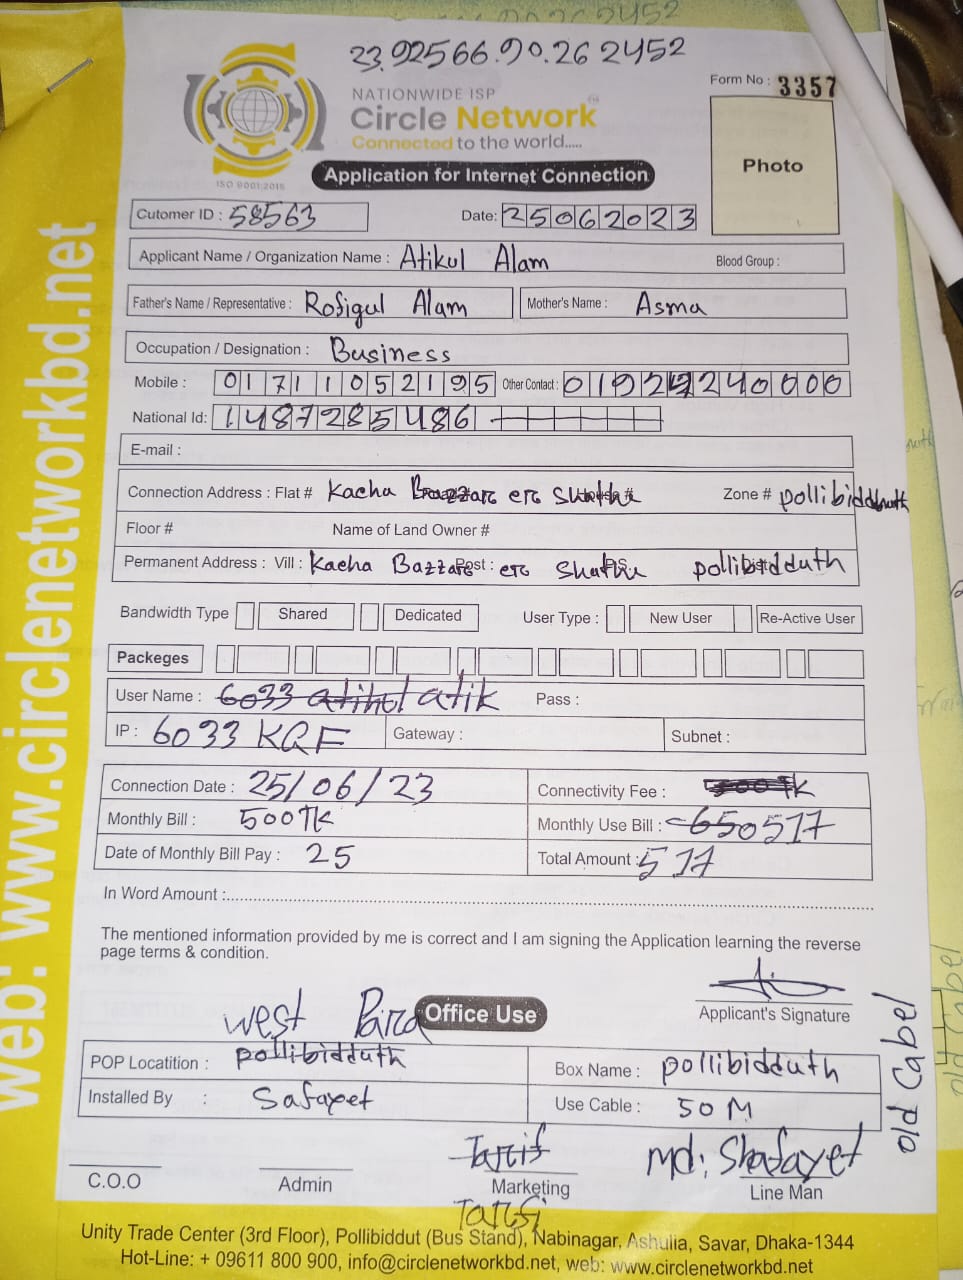 23.92566.90.262452
NATIONWIDE ISP
Circle Network
Connected to the world.....
ISO 9001:2015
Form No : 3357
Photo
Application for Internet Connection
Cutomer ID : 58563
Date: 25062023
Applicant Name / Organization Name : Atikul Alam Blood Group :
Father's Name / Representative : Rofigul Alam Mother's Name : Asma
Occupation / Designation : Business
Mobile : 01711052195 Other Contact : 01929240000
National Id: 1487285486
E-mail :
Connection Address : Flat # Kacha Bazzar er Shathe Zone # pollibidduth
Floor # Name of Land Owner #
Permanent Address : Vill : Kacha Bazzar Post : er Shathe pollibidduth
Bandwidth Type Shared Dedicated User Type : New User Re-Active User
Packeges
User Name : 6033 atikul atik Pass :
IP : 6033 KQF Gateway : Subnet :
Connection Date : 25/06/23 Connectivity Fee : TK
Monthly Bill : 500TK Monthly Use Bill : 650 517
Date of Monthly Bill Pay : 25 Total Amount : 517
In Word Amount :
The mentioned information provided by me is correct and I am signing the Application learning the reverse
page terms & condition.
Applicant's Signature
West Para Office Use
POP Locatition : pollibidduth Box Name : pollibidduth
Installed By : Safayet Use Cable : 50 M
old Cabel
Tarif Md: Shafayet
C.O.O Admin Marketing Line Man
Unity Trade Center (3rd Floor), Pollibiddut (Bus Stand), Nabinagar, Ashulia, Savar, Dhaka-1344
Hot-Line: + 09611 800 900, info@circlenetworkbd.net, web: www.circlenetworkbd.net
web: www.circlenetworkbd.net